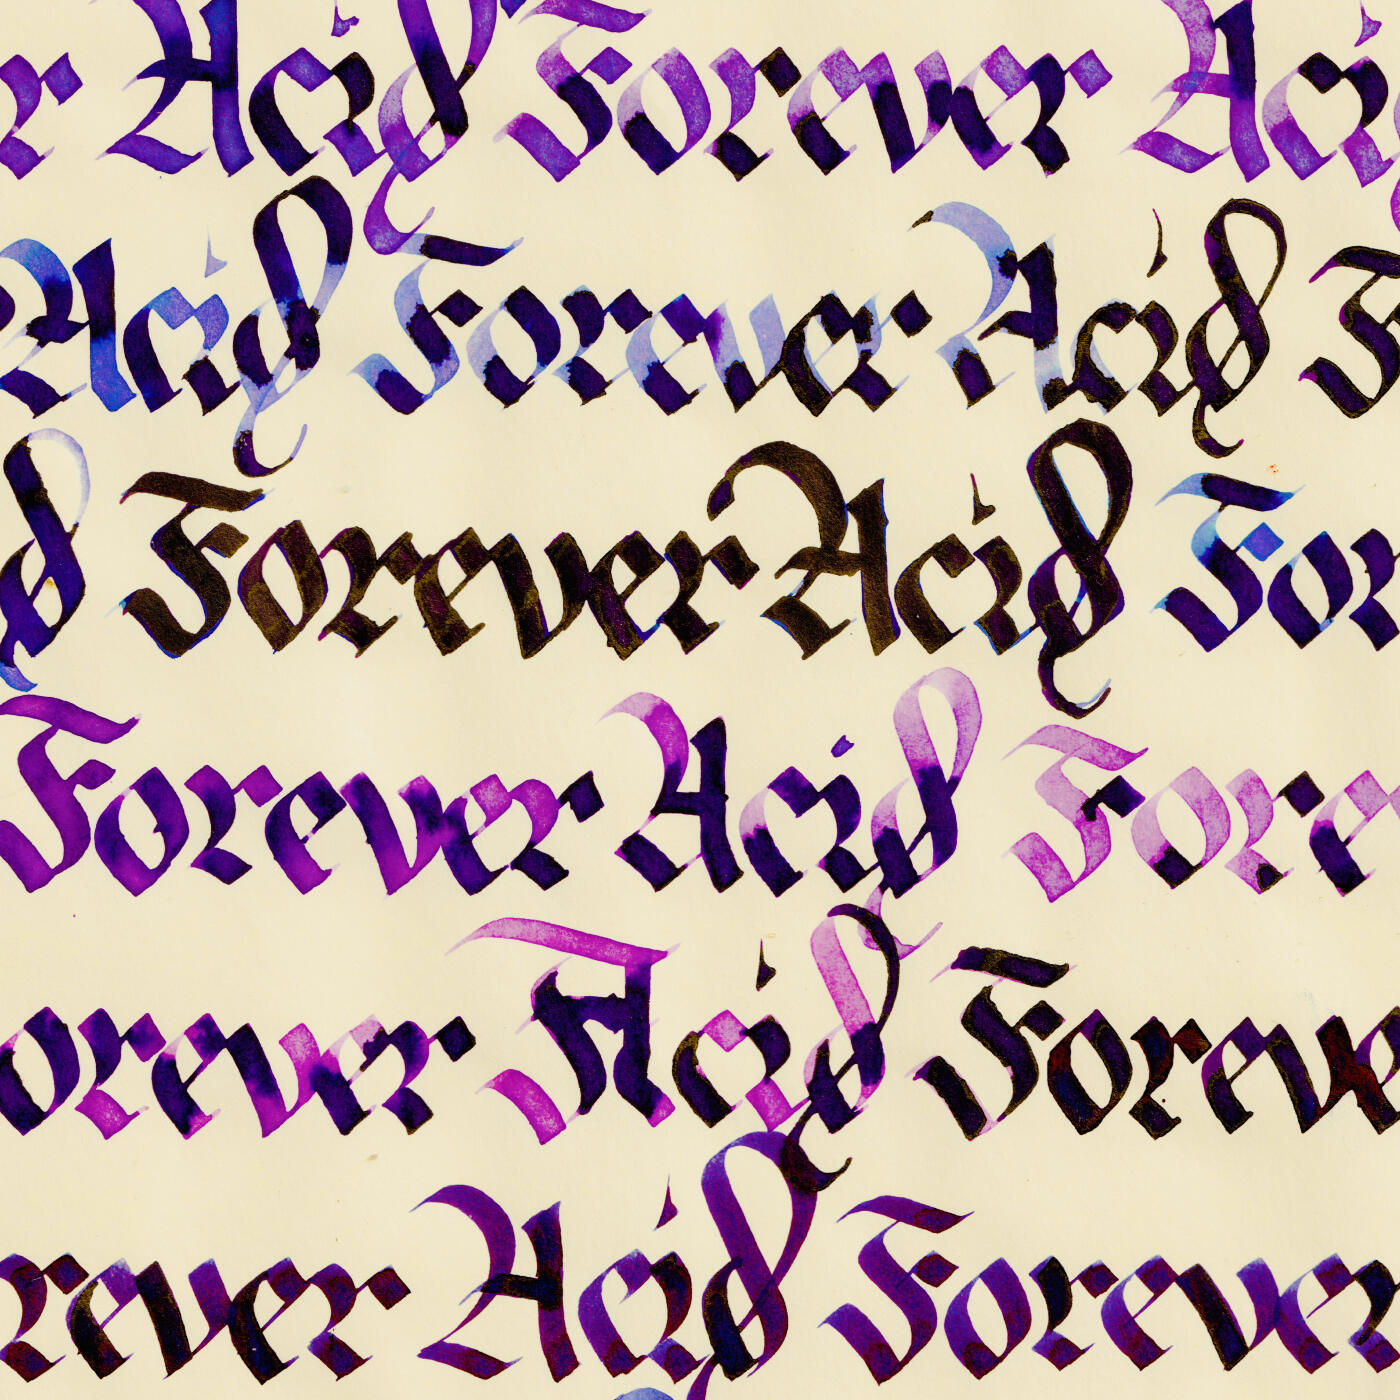 r Acid Forever Aci
Acid Forever Acid F
d Forever Acid For
Forever Acid Fore
orever Acid Foreve
rever Acid Forever